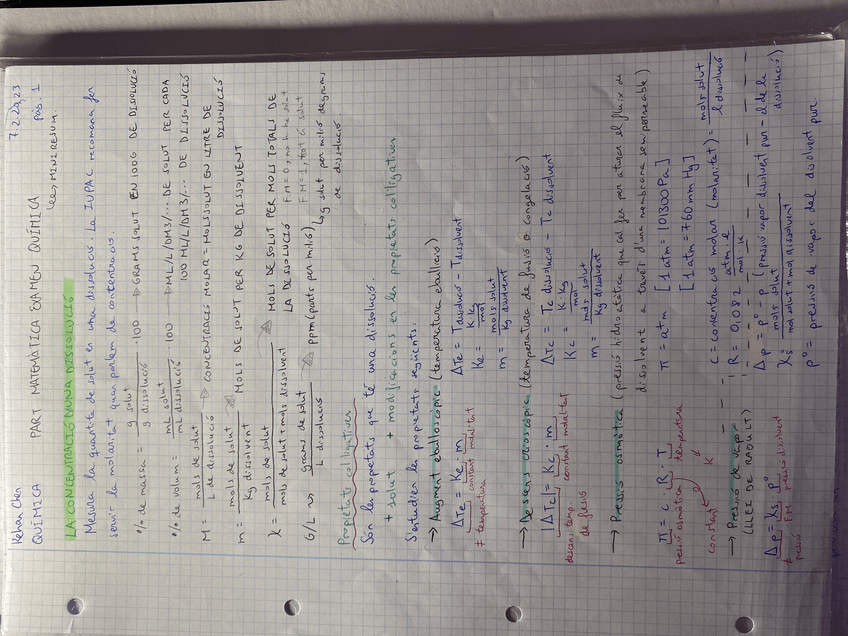 Kehan Chen
7.2.2023
QUÍMICA PART MATEMÀTICA EXAMEN QUÍMICA pàg. 1
↳ MINIRESUM
LA CONCENTRACIÓ D'UNA DISSOLUCIÓ
Mesura la quantitat de solut en una dissolució. La IUPAC recomana fer
servir la molaritat quan parlem de contentració.
% de massa = g solut / g dissolució · 100 → GRAMS SOLUT EN 100G DE DISSOLUCIÓ
% de volum = mL solut / mL dissolució · 100 → ML/L/DM3/... DE SOLUT PER CADA
100 ML/L/DM3/... DE DISSOLUCIÓ
M = mols de solut / L de dissolució → CONCENTRACIÓ MOLAR = MOLS SOLUT EN LITRE DE
DISSOLUCIÓ
m = mols de solut / Kg dissolvent → MOLS DE SOLUT PER KG DE DISSOLVENT
X = mols de solut / mols solut + mols dissolvent → MOLS DE SOLUT PER MOLS TOTALS DE
LA DISSOLUCIÓ FM=0, no hi ha solut
FM=1, tot és solut
G/L → grams de solut / L dissolució → ppm (parts per milió) ↳ g solut per milió de grams
de dissolució
Propietats col·ligatives
Són les propietats que té una dissolució.
+ solut + modificacions en les propietats col·ligatives
S'estudien les propietats següents.
→ Augment ebulloscòpic (temperatura ebullició)
ΔTe = Ke · m
ΔTe = T dissolució - T dissolvent
≠ temperatura
constant
molalitat
Ke = K · Kg / mol
m = mols solut / Kg dissolvent
→ Descens crioscòpic (temperatura de fusió o congelació)
|ΔTc| = Kc · m
ΔTc = Tc dissolució - Tc dissolvent
descens temp.
de fusió
constant
molalitat
Kc = K · Kg / mol
m = mols solut / Kg dissolvent
→ Pressió osmòtica (pressió hidrostàtica que cal fer per aturar el fluix de
dissolvent a través d'una membrana semipermeable)
π = c · R · T
π = atm [1 atm = 101300 Pa]
[1 atm = 760 mm Hg]
pressió osmòtica
temperatura
constant
K
c = concentració molar (molaritat) = mols solut / L dissolució
R = 0,082 atm · L / mol · K
→ Pressió de vapor
(LLEI DE RAOULT)
Δp = Xs · p°
Δp = p° - p (pressió vapor dissolvent pur - el de la
dissolució)
≠
pressió
FM
pressió dissolvent
Xs = mols solut / mol solut + mols dissolvent
p° = pressió de vapor del dissolvent pur.